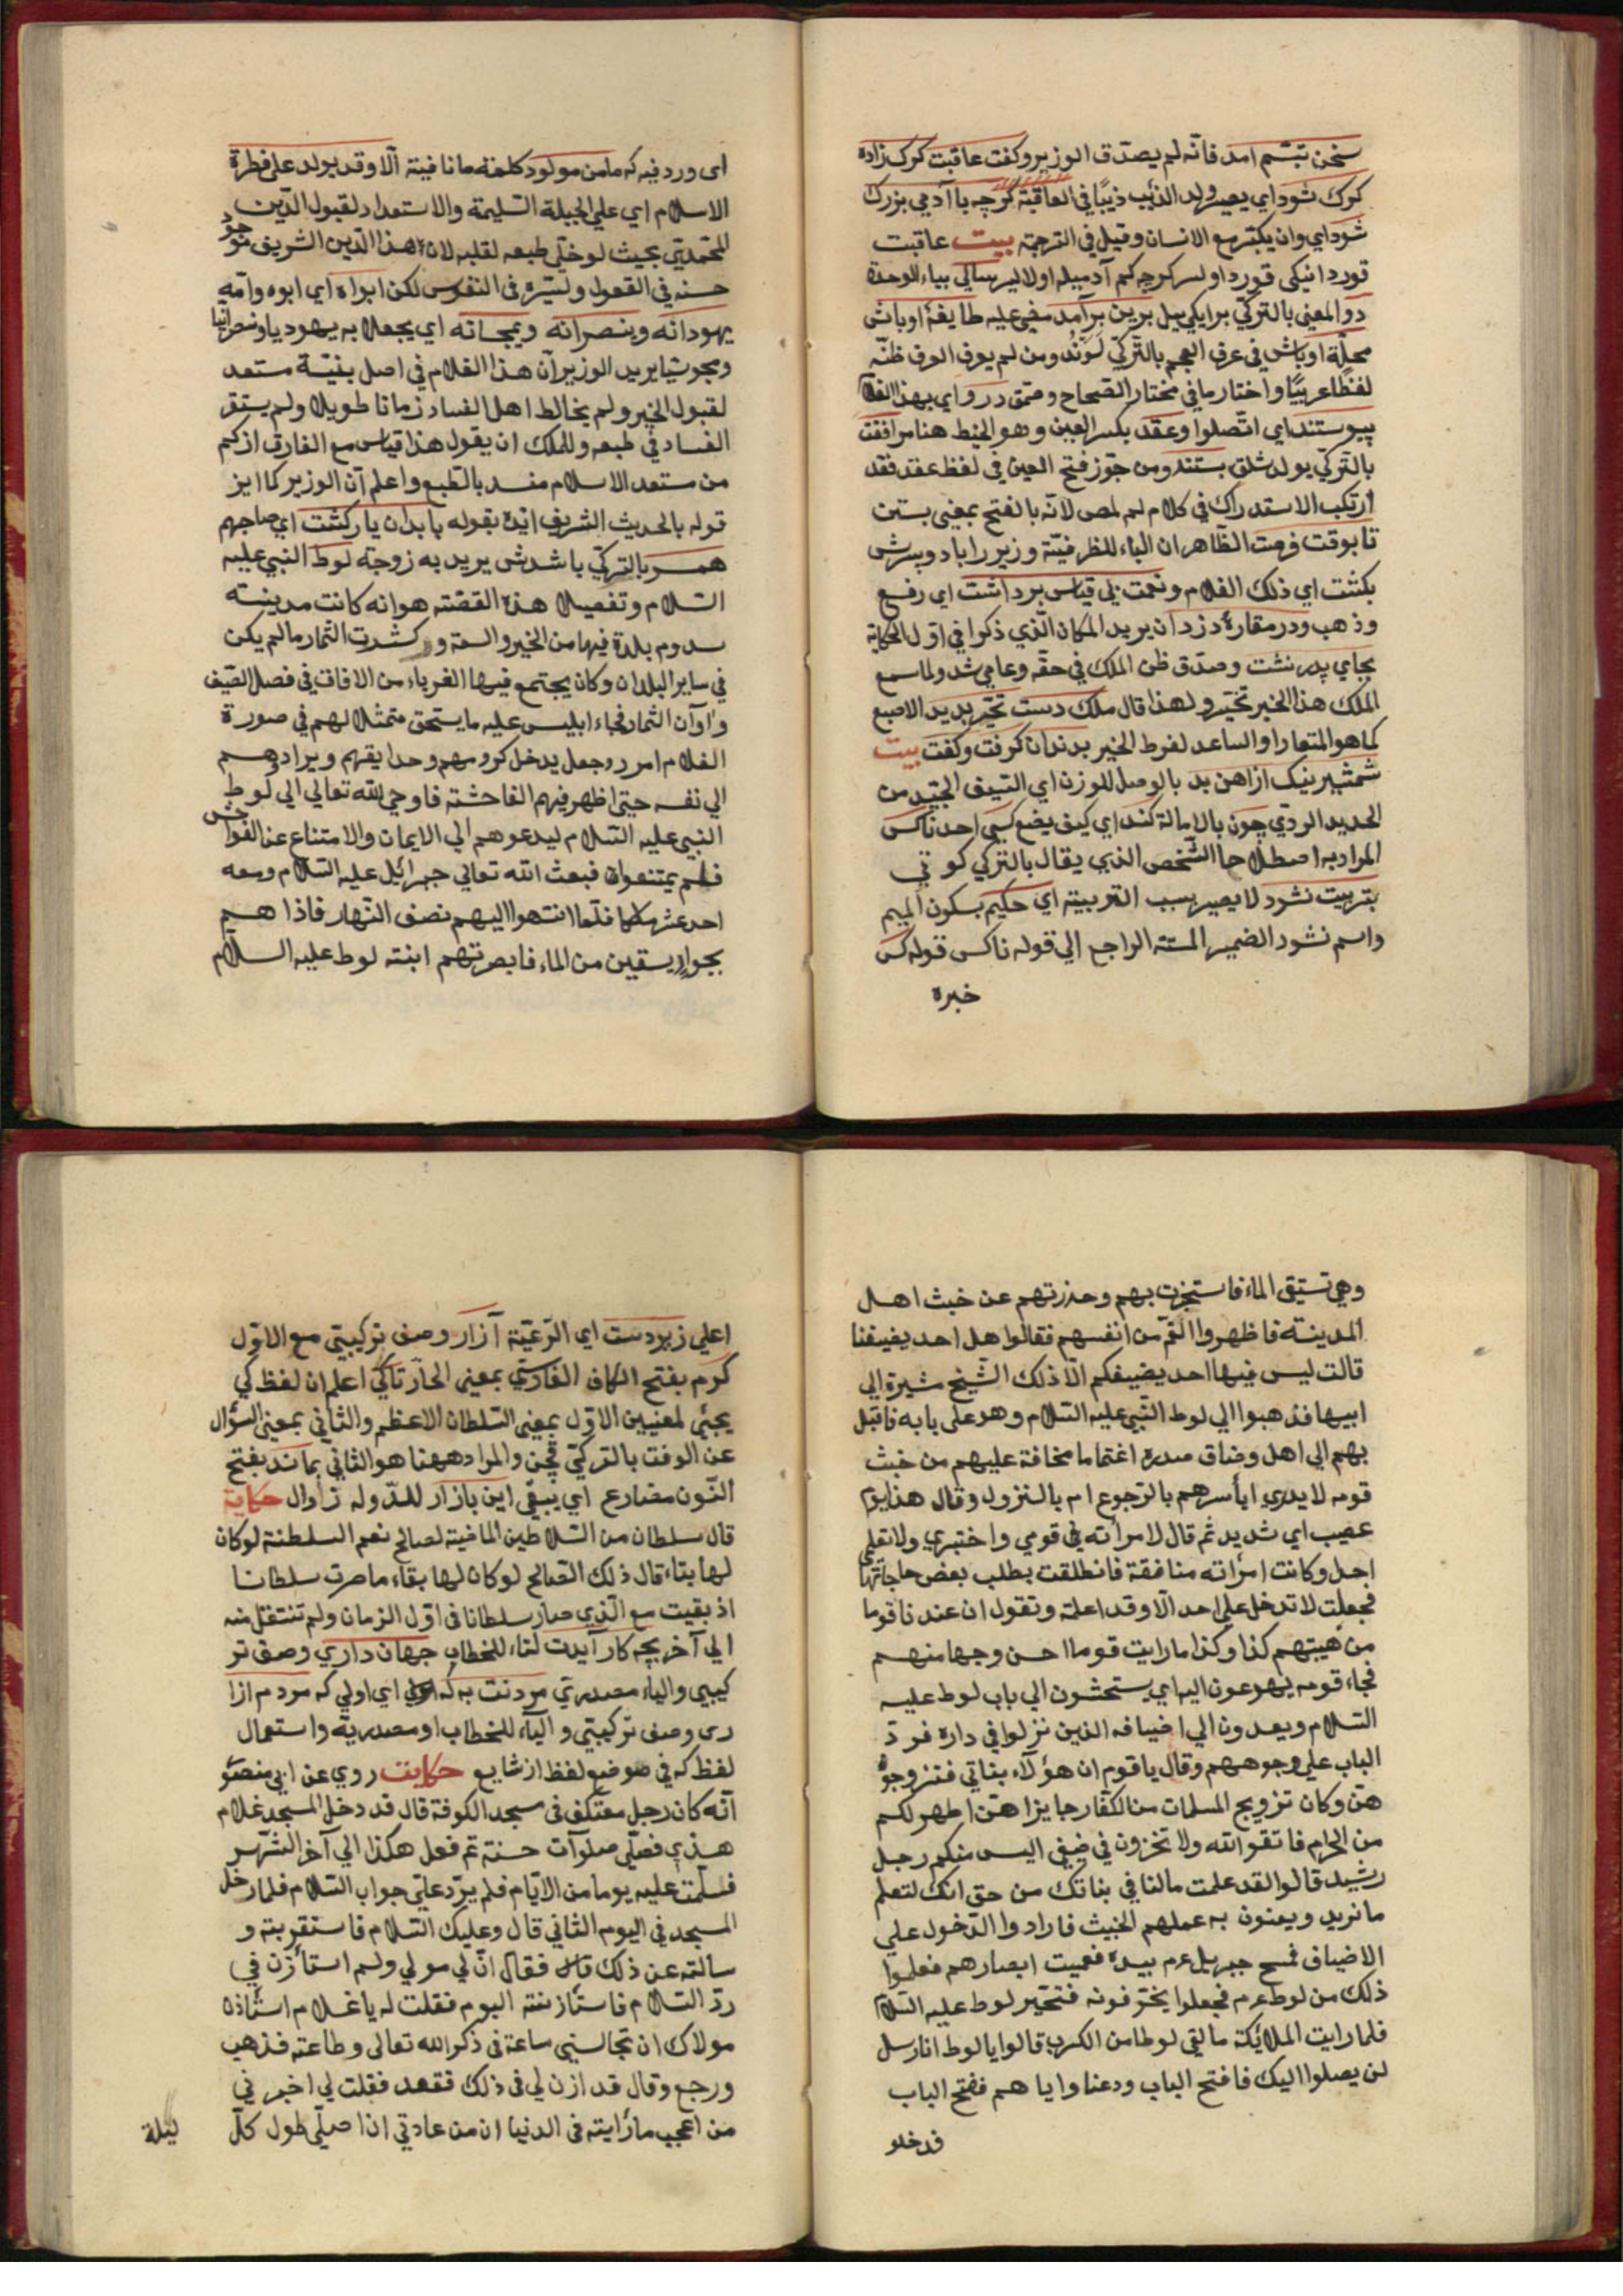 سخن تبسّم امد فانّه لم يصدّق الوزير وكفت عاقبت كرك زاده
كرك شود اي يصير ولد الذئب ذيبًا في العاقبة كرچه با آدمي بزرك
شود اي وان يكبر مع الانسان وقيل في الترجمة بيت عاقبت
قورد انيكى قورد اولسر كرچه كم آدميله اولا لير سالي بياء الوحدة
دو المعنى بالتركي بر ايكي ييل برين برآمد مضى عليه طايفهٔ اوباش
محلّة اوباش في عرف العجم بالتركي لوند ومن لم يعرف العرف ظنّه
لفظًا عربيًّا واختار ما في مختار الصحاح وصمّق درو اي بهذا الغلا
پيوستند اي اتّصلوا وعقد بكسر العين وهو الخيط هنا مرافقت
بالتركي يولدشلق بستند ومن جوّز فتح العين في لفظ عقد فقد
ارتكب الاستدراك في كلام لم لمص لانّه بالفتح بمعنى بستن
تا بوقت فرصت الظاهر ان الباء للظرفيّة وزير را با دو پسرش
بكشت اي ذلك الغلام ونعمت بي قياس برداشت اي رفع
وذهب ودر مقارهٔ دزدان يريد المكان الّذي ذكر في اوّل الحكاية
بجاي پدر نشت وصدّق ظن الملك في حقّه وعامي شد ولما سمع
الملك هذا الخبر تحيّر ولهذا قال ملك دست تحيّر يريد الاصبع
كما هو المتعارا والساعد لفرط الخبر بدندان كرفت وكفت بيت
شمشير نيك ازاهن بد بالوصل للوزن اي السيف الجيّد من
الحديد الردّي چون بالامالة كند اي كيف يضع كسى احد ناكس
المراد به اصطلاحا الشخص الذي يقال بالتركي كوتي
بتربيت نشود لا يصير بسبب التربية اي حكيم بسكون الميم
واسم نشود الضمير المستتر الراجع الي قوله ناكس قوله كس
خبره
اى ورد فيه كه ما من مولود كلمة ما نافية الّا وقد يولد على فطرة
الاسلام اي علي الجبلة السليمة والاستعداد لقبول الدّين
المحمّديّ بحيث لو خلّي طبعه لقلبه لان هذا الدّين الشريف موجود
حسنه في العقول وليسره في النفوس لكن ابواه اي ابوه وامّه
يهودانه وينصرانه ويمجسانه اي يجعلا به يهوديا ونصرانيا
ومجوسيّا يريد الوزير انّ هذا الغلام في اصل بنيّة مستعد
لقبول الخير ولم يخالط اهل الفساد زمانا طويلا ولم يستقر
الفساد في طبعه وللملك ان يقول هذا قياس مع الفارق اذ كم
من مستعد الاسلام مفسد بالطبع واعلم انّ الوزير كما ايز
قوله بالحديث الشريف ايّده بقوله با بدان يار كشت اي صاحبهم
همسر بالتركي باشدش يريد به زوجة لوط النبي عليه
السّلام وتفصيل هذه القصّة هو انه كانت مدينته
سدوم بلدة فيها من الخير والسعة وكثرت الثمار ما لم يكن
في ساير البلدان وكان يجتمع فيها الغرباء من الافاق في فصل الصّيف
واوآن الثمار فجاء ابليس عليه ما يستحق متمثلا لهم في صورة
الغلام امرد وجعل يدخل كروسهم وحدايقهم ويرادهم
الي نفسه حتى اظهر فيهم الفاحشة فاوحي الله تعالي الي لوط
النبي عليه السّلام ليدعوهم الي الايمان والامتناع عن الفواحش
فلم يمتنعوا فبعث الله تعالي جبرائيل عليه السّلام ومعه
احد عشر ملكا فلمّا انتهوا اليهم نصف النّهار فاذا هم
بجوار يسقين من الماء فابصرتهم ابنته لوط عليه السّلام
وهي تستقي الماء فاستخبرت بهم وحذرتهم عن خبث اهل
المدينة فاظهروا الغمّ من انفسهم فقالوا هل احد يضيفنا
قالت ليس فيها احد يضيفكم الّا ذلك الشّيخ مشيرة الي
ابيها فذهبوا الي لوط النّبي عليه السّلام وهو على بابه فاقبل
بهم الي اهل وضاق صدره اغتماما مخافة عليهم من خبث
قومه لا يدري ايأسرهم بالرّجوع ام بالنّزول وقال هذا يوم
عصيب اي شديد ثم قال لامرأته في قومي واختبزي ولا تعلمي
احد وكانت امرأته منافقة فانطلقت بطلب بعض حاجاتها
فجعلت لا تدخل على احد الّا وقد اعلمته وتقول ان عندنا قوما
من هيبتهم كذا وكذا ما رايت قوما احسن وجها منهم
فجاء قومه يهرعون اليه اي يستحثون الي باب لوط عليه
السّلام ويعدون الي اضيافه الذين نزلوا في داره فردّ
الباب على وجوههم وقال يا قوم ان هؤلاء بناتي فتزوجو
هنّ وكان تزويج المسلمات من الكفّار جايزا هنّ اطهر لكم
من الحرام فاتقوا الله ولا تخزون في ضيفي اليس منكم رجل
رشيد قالوا لقد علمت ما لنا في بناتك من حق انك لتعلم
ما نريد ويعنون به عملهم الخبيث فارادوا الدّخول علي
الاضياف فمسح جبريل عم بيده فعميت ابصارهم فعلموا
ذلك من لوط عم فجعلوا يخوّفونه فتحيّر لوط عليه السّلام
فلما رايت الملائكة ما لقي لوطا من الكرب قالوا يا لوط انا رسل
لن يصلوا اليك فافتح الباب ودعنا واياهم ففتح الباب
فدخلو
اعلي زبردست اي الرّعيّة آزار وصف تركيبيّ مع الاوّل
كرم بفتح الكاف الفارسيّ بمعنى الحارّ تاكي اعلم ان لفظ كي
يجيئ لمعنيين الاوّل بمعنى السّلطان الاعظم والثاني بمعنى السؤال
عن الوقت بالتركيّ قچن والمراد ههنا هو الثاني بماند بفتح
النّون مضارع اي يبقي اين بازار للدّوله زاوال حكاية
قال سلطان من السّلاطين الماضية لصالح نعم السلطنة لو كان
لها بقاء قال ذلك الصالح لو كان لها بقاء ما صرت سلطانا
اذ بقيت مع الّذي صار سلطانا في اوّل الزمان ولم تنتقل منه
الي آخر بچه كار آيدت لتاء للخطاب جهان داري وصف تر
كيبي والياء مصدريّ مردنت به كه اي اولي كه مردم آزا
رى وصف تركيبيّ والياء للخطاب او مصدريّة واستعمال
لفظ كه في موضع لفظ از شايع حكايت روي عن ابي منصور
انّه كان رجل معتكف في مسجد الكوفة قال قد دخل المسجد غلام
هندي فصلّى صلوات حسنة ثم فعل هكذا الي آخر الشّهر
فسلّمت عليه يوما من الايّام فلم يردّ عليّ جواب السّلام فلما دخل
المسجد في اليوم الثاني قال وعليك السّلام فاستقربته و
سالته عن ذلك فقال انّ لي مولي ولم استأذن في
ردّ السّلام فاستأذنته اليوم فقلت له يا غلام استأذن
مولاك ان تجالسني ساعة في ذكر الله تعالى وطاعته فذهب
ورجع وقال قد اذن لي في ذلك فقعد فقلت لي اخبرني
من اعجب ما رأيته في الدنيا ان من عادتي ان اصلّي طول كلّ
ليلة